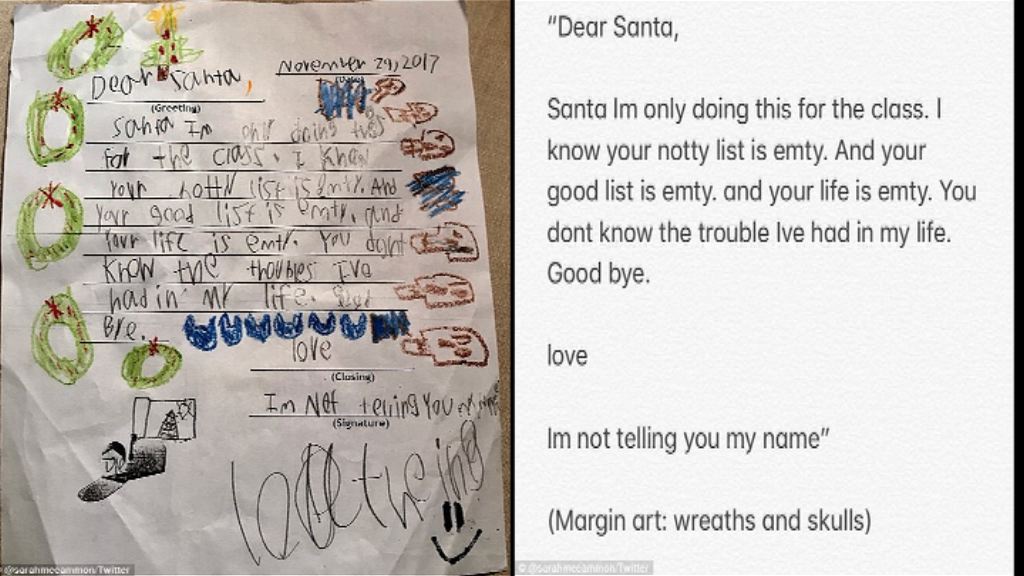 November 29, 2017
(Date)
Dear Santa,
(Greeting)
Santa Im only doing this
for the class. I know
your notty list is emty. And
your good list is emty. and
your life is emty. You dont
know the troubles Ive
had in my life. Good
Bye.
love
(Closing)
Im Not telling you my name
(Signature)
@sarahmccammon/Twitter
"Dear Santa,
Santa Im only doing this for the class. I
know your notty list is emty. And your
good list is emty. and your life is emty. You
dont know the trouble Ive had in my life.
Good bye.
love
Im not telling you my name"
(Margin art: wreaths and skulls)
© @sarahmccammon/Twitter